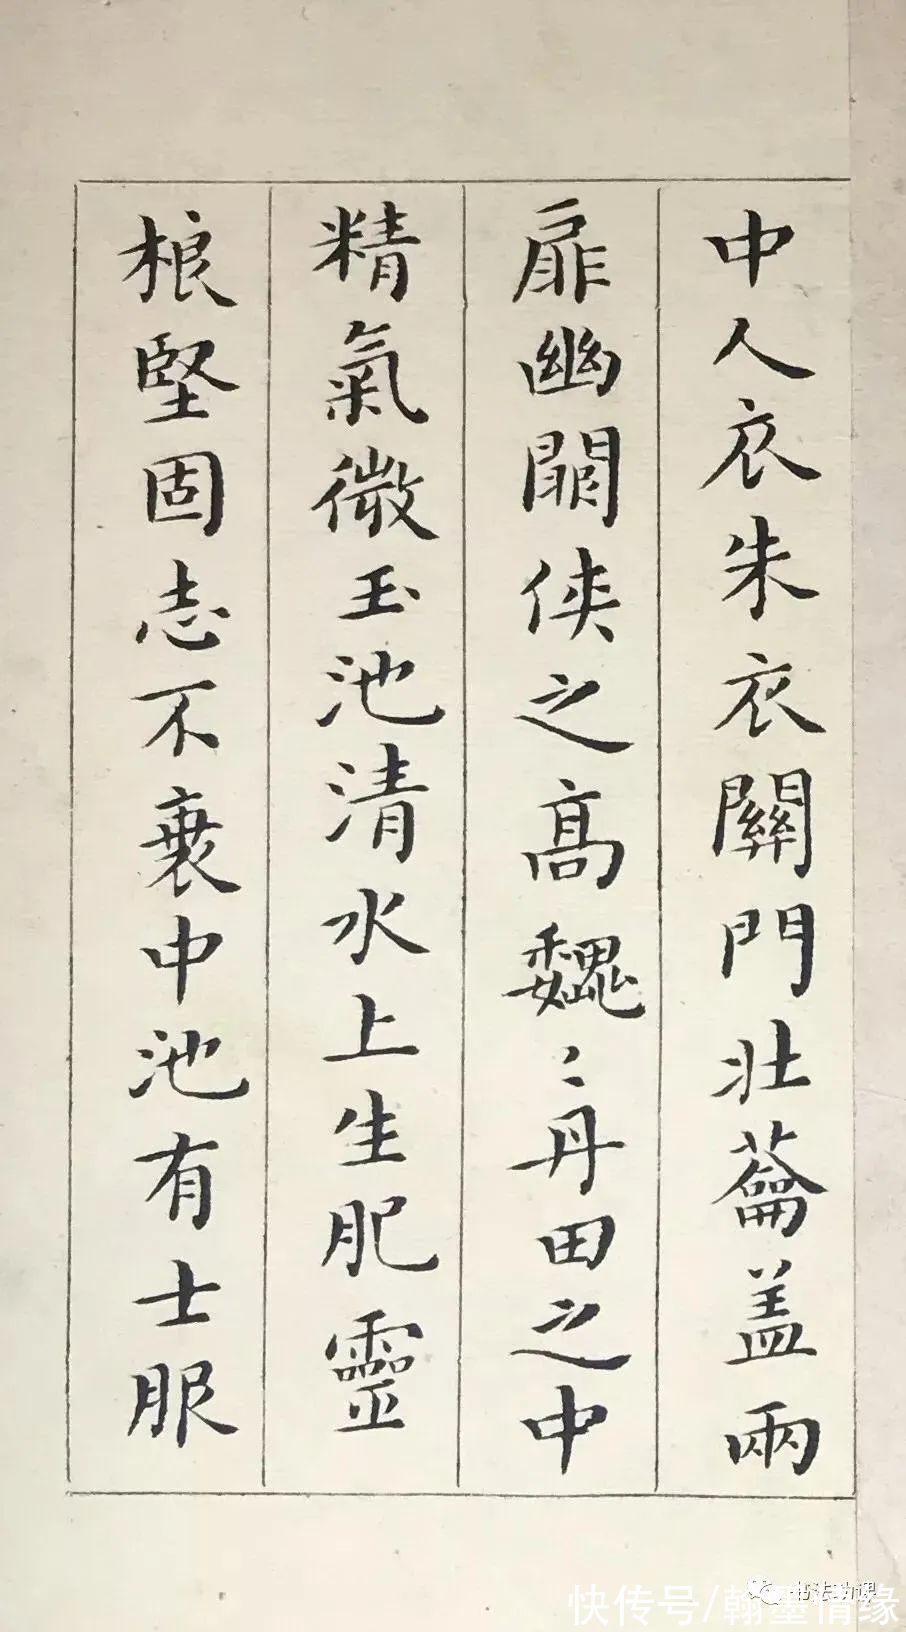 中人衣朱衣關門壯蘥盖兩
扉幽闗俠之高魏〻丹田之中
精氣微玉池清水上生肥靈
根堅固志不衰中池有士服
书法功课
快传号/翰墨情缘